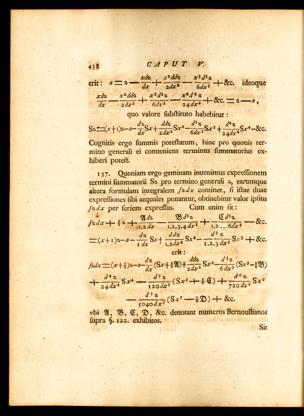 438 CAPUT V.
erit: s = z − xdz/dx + x²ddz/2dx² − x³d³z/6dx³ + &c. ideoque
xdz/dx − x²ddz/2dx² + x³d³z/6dx³ − x⁴d⁴z/24dx⁴ + &c. = z − s,
quo valore substituto habebitur:
Sz = (x+1)z − s − dz/dx Sx + ddz/2dx² Sx² − d³z/6dx³ Sx³ + d⁴z/24dx⁴ Sx⁴ − &c.
Cognitis ergo summis potestatum, hinc pro quouis termino
generali ei conueniens terminus summatorius exhiberi
potest.
137. Quoniam ergo geminam inuenimus expressionem
termini summatorii Sz pro termino generali z, earumque
altera formulam integralem ∫zdx continet, si istae duae
expressiones sibi aequales ponantur, obtinebitur valor ipsius
∫zdx per seriem expressus. Cum enim sit:
∫zdx + ½z + 𝔄dz/1.2dx − 𝔅d³z/1.2.3.4dx³ + ℭd⁵z/1.2...6dx⁵ − &c.
= (x+1)z − s − dz/1dx Sx + ddz/1.2dx² Sx² − d³z/1.2.3dx³ Sx³ + &c.
erit:
vbi 𝔄, 𝔅, ℭ, 𝔇, &c. denotant numeros Bernoullianos
supra §. 122. exhibitos.
Sit